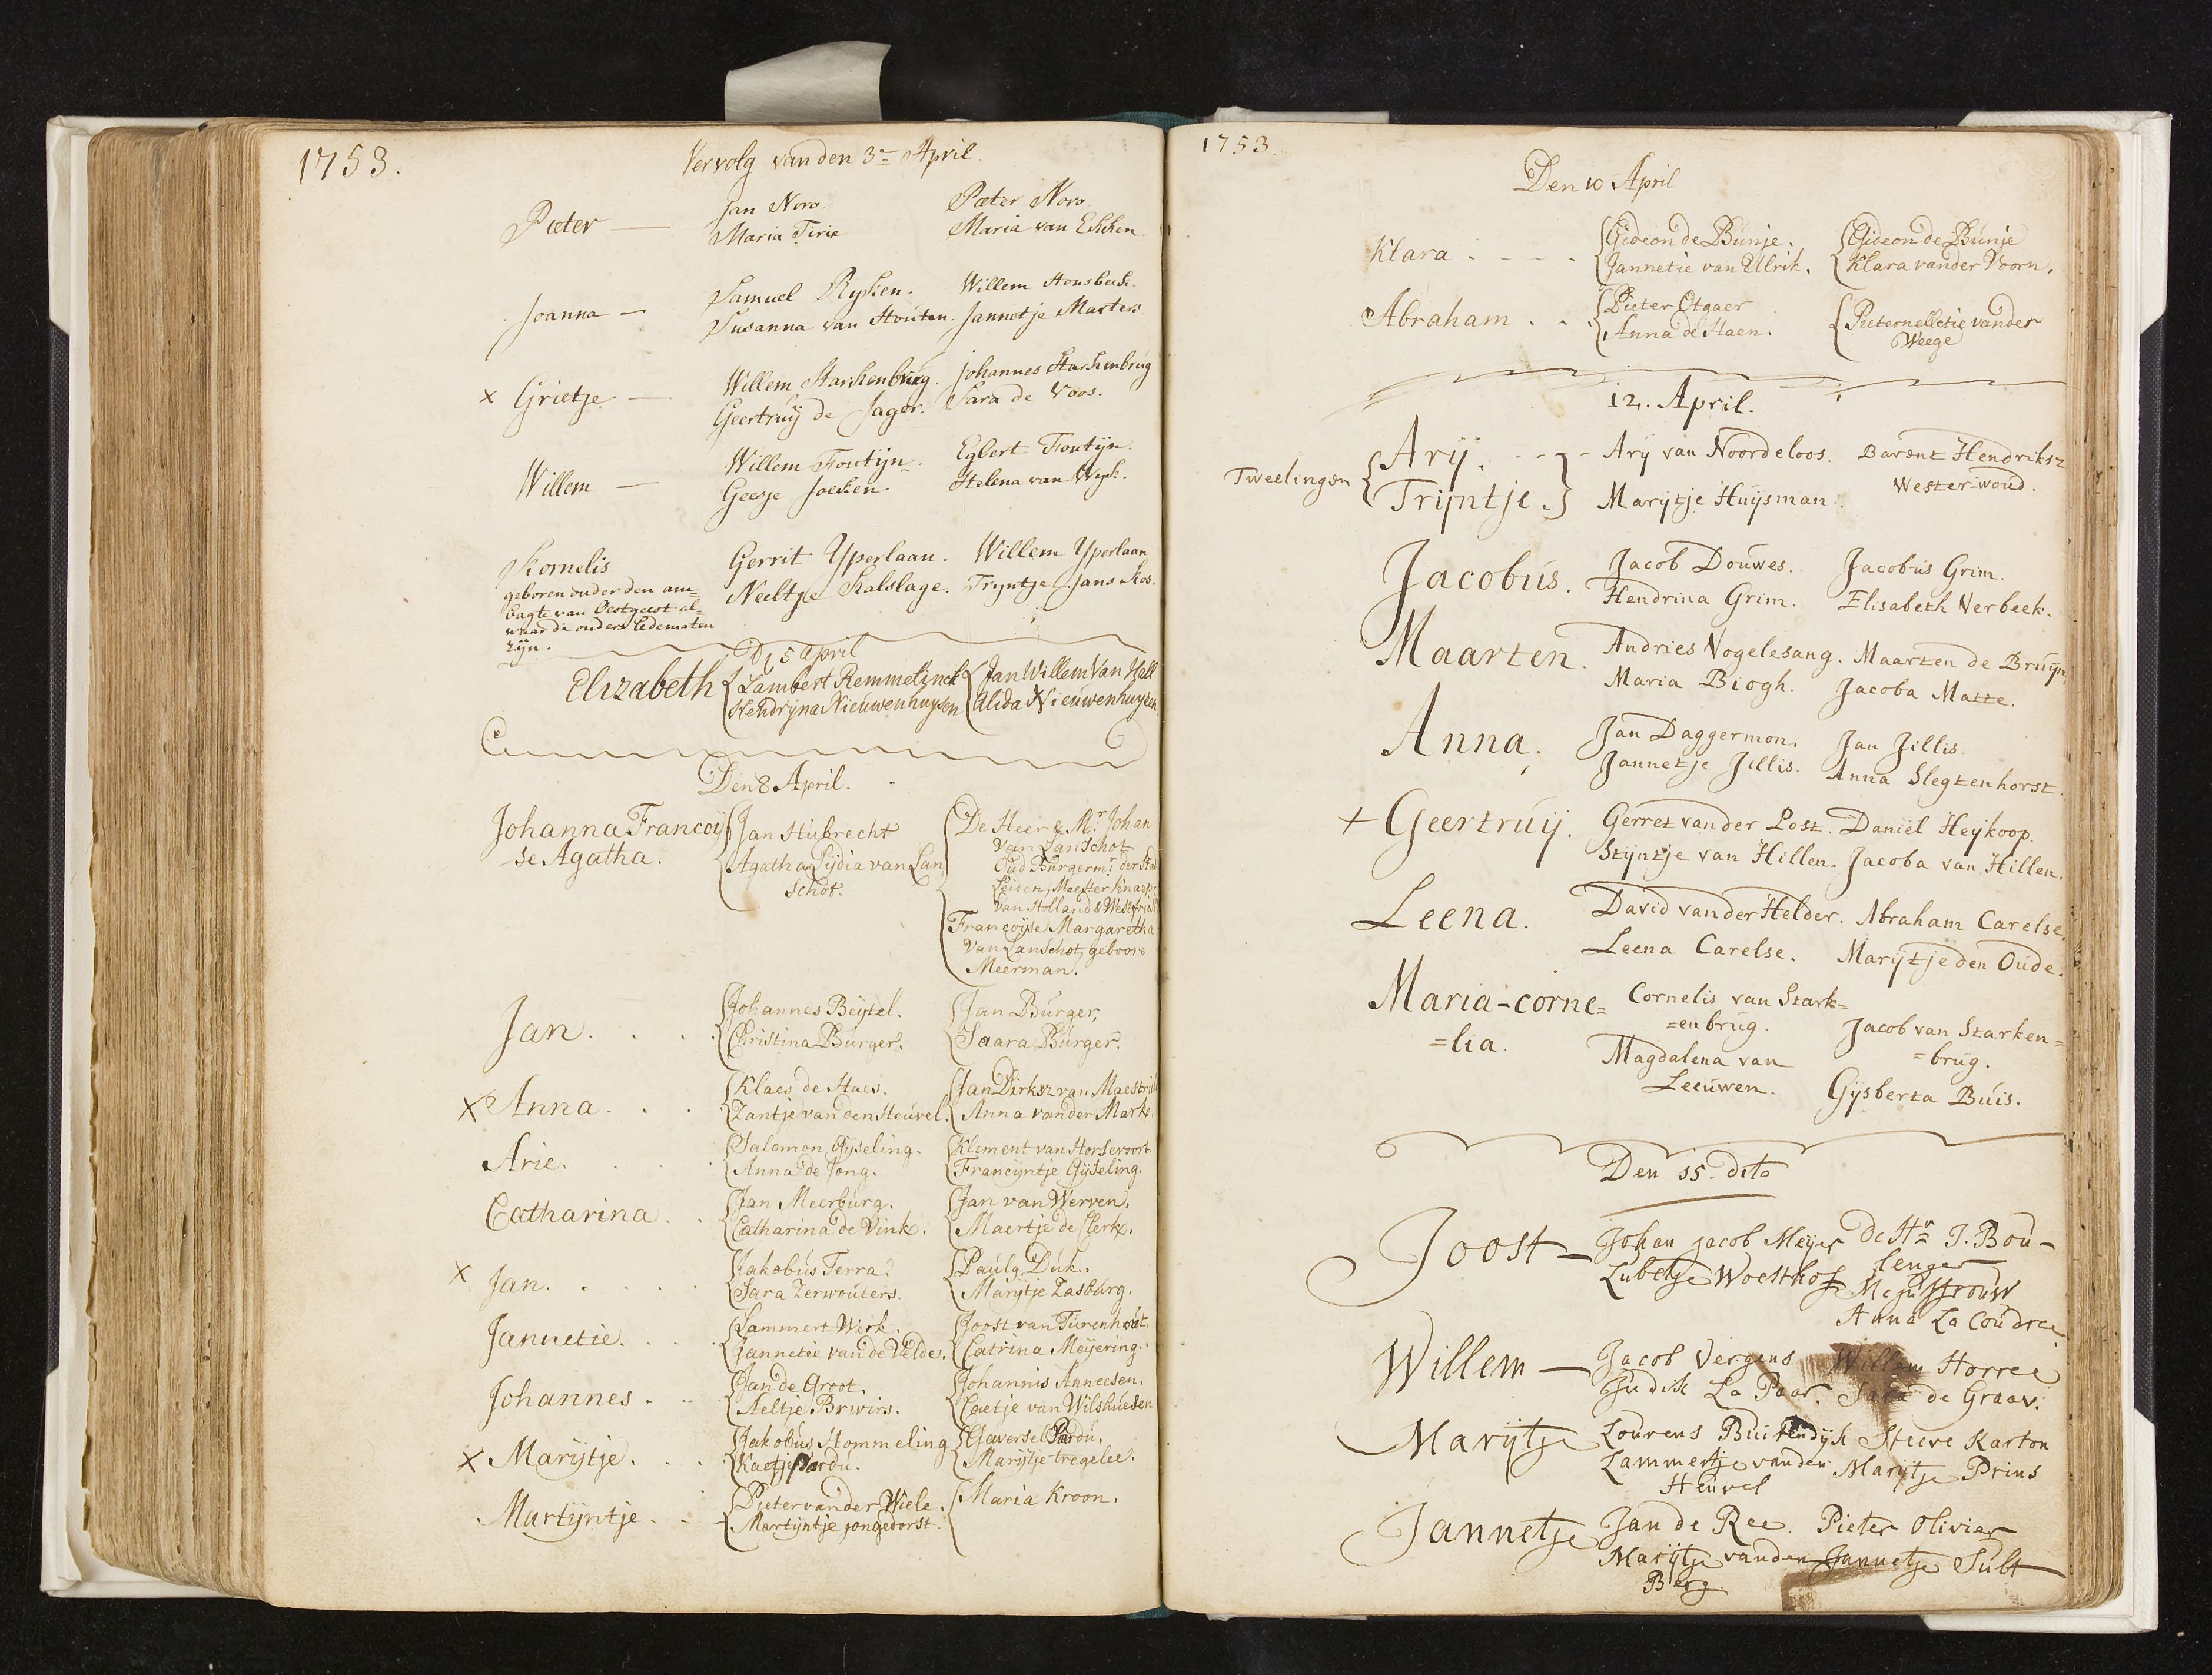 1753.
Vervolg van den 3en April
Pieter — Jan Noro Pieter Noro
Maria Tirie Maria van Ekken
Joanna — Samuel Ryken. Willem Hensbeek.
Susanna van Houten. Jannetje Marters
x Grietje — Willem Starkenbrug. Johannes Starkenbrug
Geertruij de Jager. Sara de Voos.
Willem — Willem Fontijn. Egbert Fontijn.
Geesje Joeken Helena van Wyk.
Kornelis Gerrit Yperlaan. Willem Yperlaan
geboren onder den am=
bagte van Oestgeest al= Neeltje Kalslage. Tryntje Jans Kos.
waar de ouders Ledematen
zijn.
D, 5 april
Elizabeth Lambert Remmelinck Jan Willem Van Hell
Hendrijna Nieuwenhuysen Alida Nieuwenhuysen
Den 8 April.
Johanna Francoij Jan Hubrecht De Heer & Mr. Johan
se Agatha. Agatha Lydia van Lan Van Lanschot
schot. Oud Burgermr. der Stad
Leiden, Meester Knaep
van Holland & Westfriesl
Françoyse Margaretha
Van Lanschot, geboore
Meerman.
Jan. . . . Johannes Beytel. Jan Burger,
Christina Burger. Saara Burger.
x Anna. . . Klaes de Haes. Jan Dirksz van Maestrich
Zantje van den Heuvel. Anna vander Mark.
Arie. . . Salomon Gyseling. Klement van Horsevoort.
Anna de Jong. Francyntje Gyseling.
Catharina. . Jan Meerburg. Jan van Werven.
Catharina de Vink. Maertje de Clerk.
x Jan. . . . . Jakobus Terra. Paulg Duk.
Sara Zerwouters. Marytje Zasburg.
Jannetie. . . Lammert Werk. Joost van Turenhout.
Jannetie van de Velde. Catrina Meyering.
Johannes. . . Jan de Groot. Johannis Anneesen.
Aeltje Brwirs. Caetje van Wilshuesen
x Marijtje. . . Jakobus Hommeling Gaversel Pardu.
Kaetje Pardu. Marijtje tregelee.
Martijntje. . . Pieter vander Wiele. Maria Kroon.
Martijntje jongedorst.
1753.
Den 10 April
Klara . - - - . Gideon de Bunje. Gideon de Bunje
Jannetie van Ulrik. Klara vander Voorn.
Abraham . . Pieter Otgaer Pieternelletie vander
Anna de Haen. Weege
12. April.
Tweelingen Arij. - - - Ary van Noordeloos. Barent Hendriksz
Trijntje. Marytje Huysman. Wester-woud.
Jacobus. Jacob Douwes. Jacobus Grim.
Hendrina Grim. Elisabeth Verbeek.
Maarten. Andries Vogelesang. Maarten de Bruijn.
Maria Biogh. Jacoba Matte.
Anna. Jan Daggermon. Jan Jillis
Jannetje Jillis. Anna Slegtenhorst.
+ Geertruij. Gerret vander Post. Daniel Heykoop.
Styntje van Hillen. Jacoba van Hillen.
Leena. David vander Helder. Abraham Carelse.
Leena Carelse. Marytje den Oude.
Maria-corne= Cornelis van Stark=
=enbrug. Jacob van Starken=
=lia. Magdalena van =brug.
Leeuwen. Gysberta Buis.
Den 15. dito
Joost — Johan jacob Meyer de Hr J. Bou-
Lubetje Woesthof lenger
Mejuffrouw
Anna La Coudree
Willem — Jacob Vergens Willem Horree
Judik La Paar. Sara de Graav.
Marijtje Lourens Buitendyk Steeve Karton
Lammertje van den Marytje Prins
Heuvel
Jannetje Jan de Ree. Pieter Olivier
Marijtje vanden Jannetje Sult
Berg